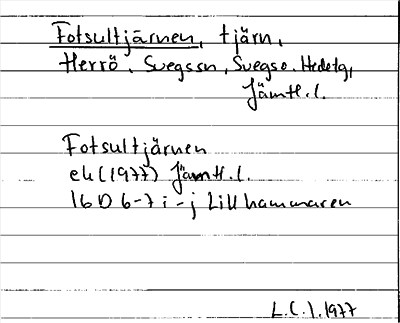 Fotsultjärnen, tjärn,
Herrö, Svegssn, Svegs o. Hedetg,
Jämtl. l.
Fotsultjärnen
ek (1977) Jämtl. l.
16 D 6-7 i-j Lillhammaren
L.C.). 1977